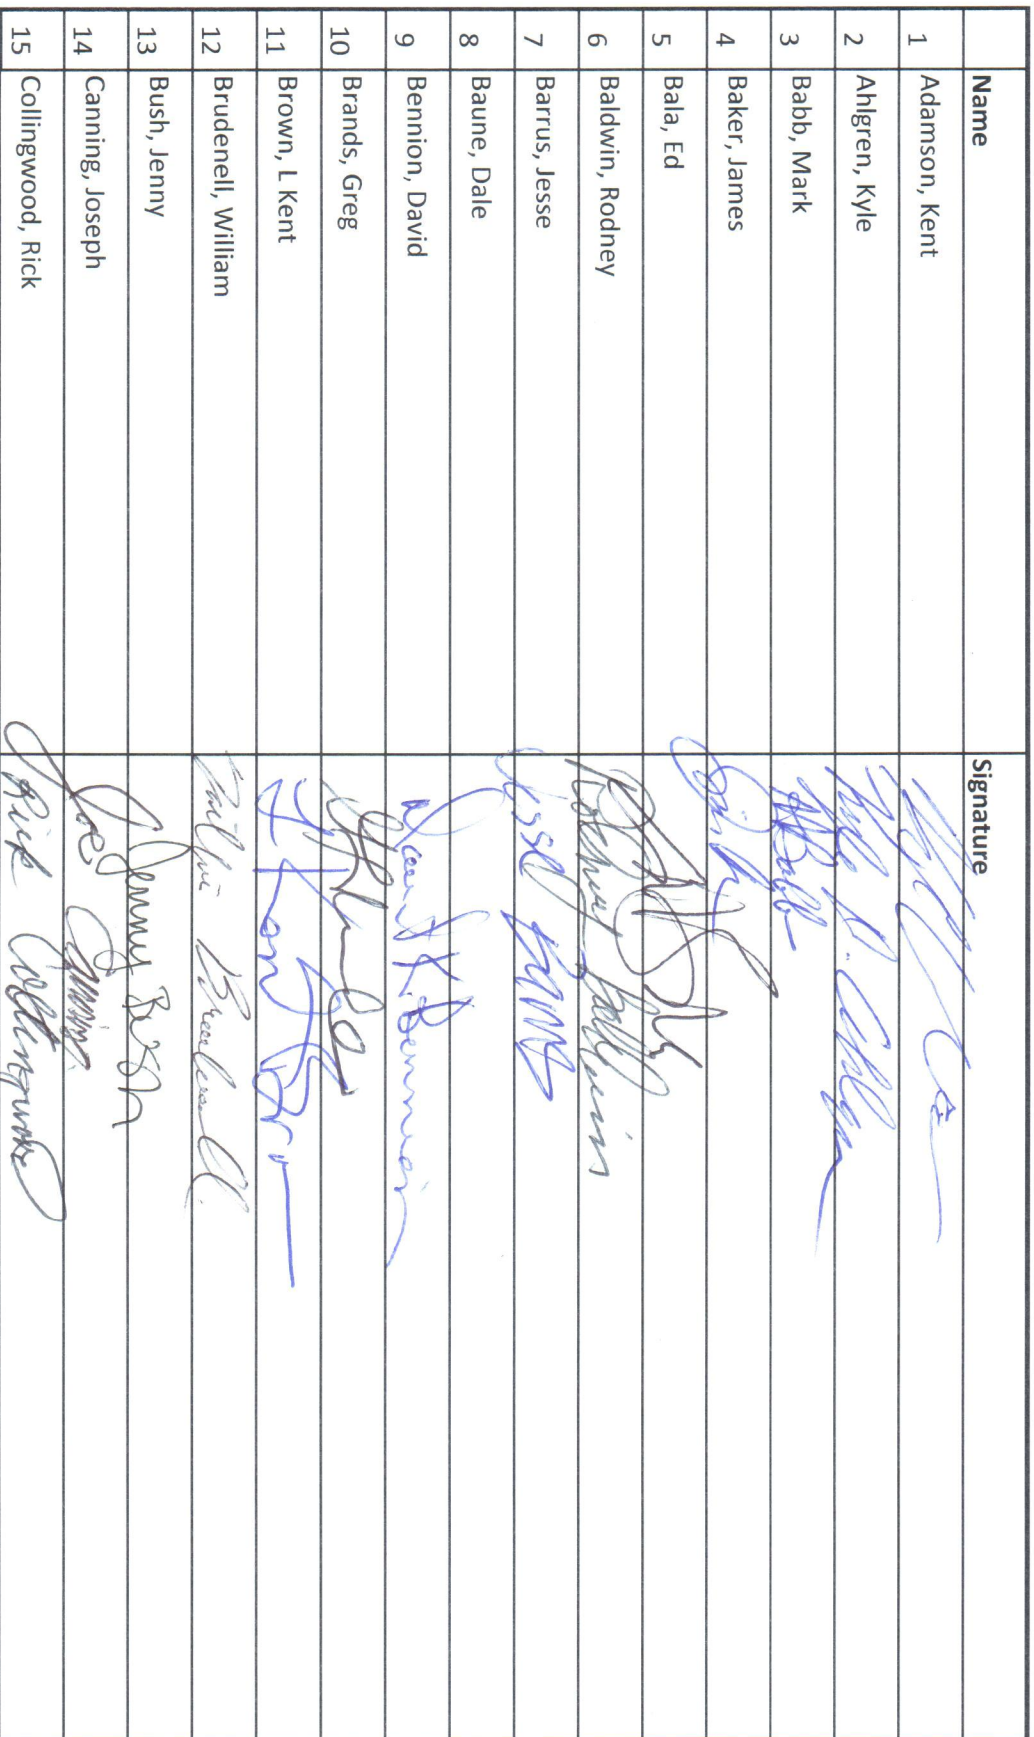 Name Signature
1 Adamson, Kent
2 Ahlgren, Kyle Kyle D. Ahlgren
3 Babb, Mark MBabb
4 Baker, James
5 Bala, Ed
6 Baldwin, Rodney Rodney Baldwin
7 Barrus, Jesse Jesse Barrus
8 Baune, Dale
9 Bennion, David David K. Bennion
10 Brands, Greg
11 Brown, L Kent L Kent Brown
12 Brudenell, William William Brudenell
13 Bush, Jenny Jenny Bush
14 Canning, Joseph Joe Canning
15 Collingwood, Rick Rick Collingwood